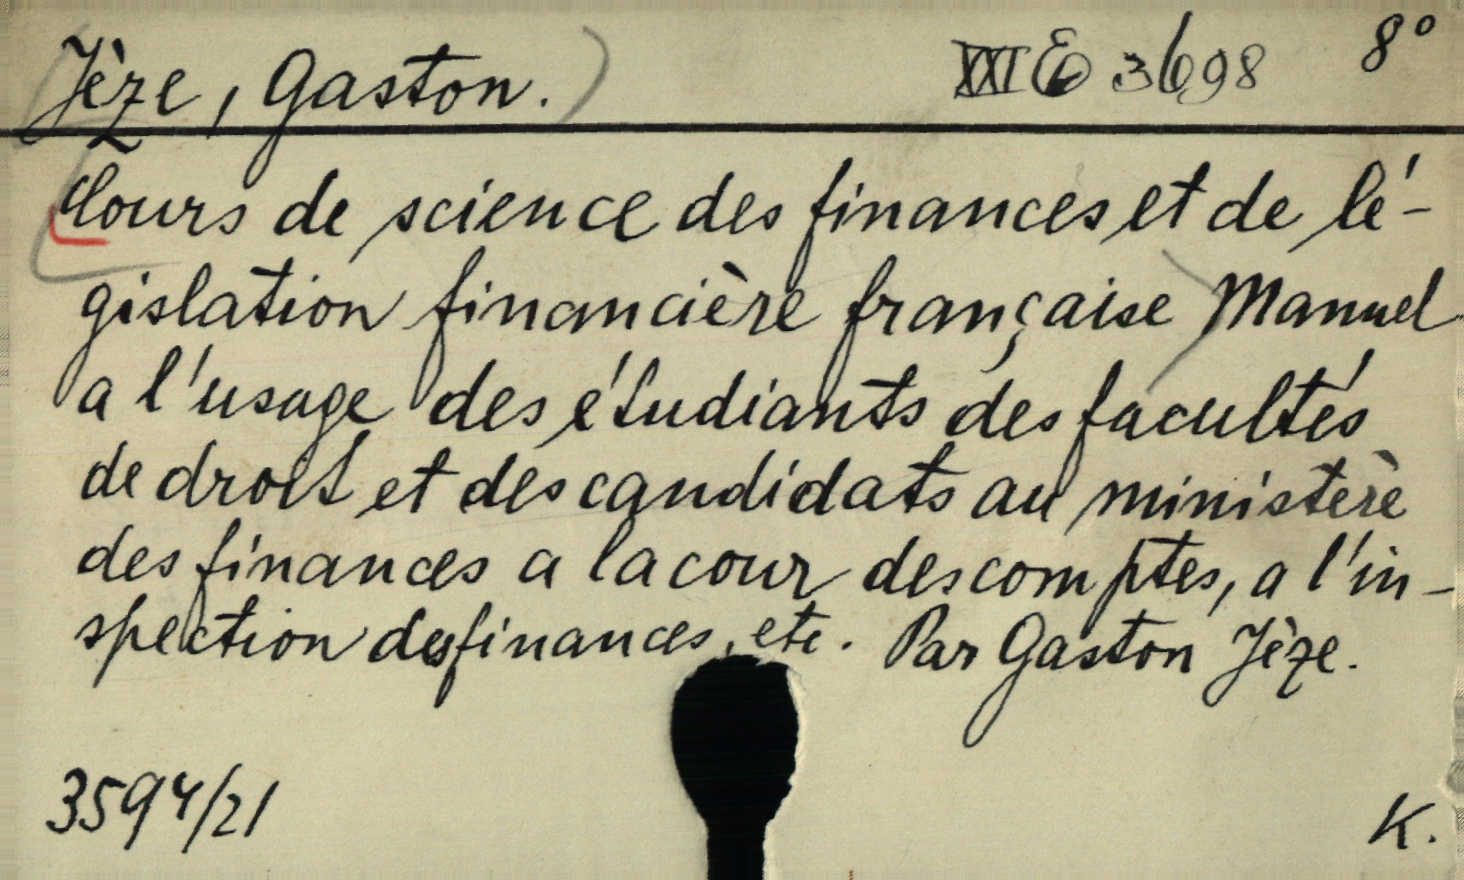 Jèze, Gaston. XXI E 3698 8°
Cours de science des finances et de lé-
gislation financière française Manuel
a l'usage des étudiants des facultés
de droit et des candidats au ministère
des finances a la cour des comptes, a l'in-
spection des finances, etc. Par Gaston Jèze.
3594/21 K.